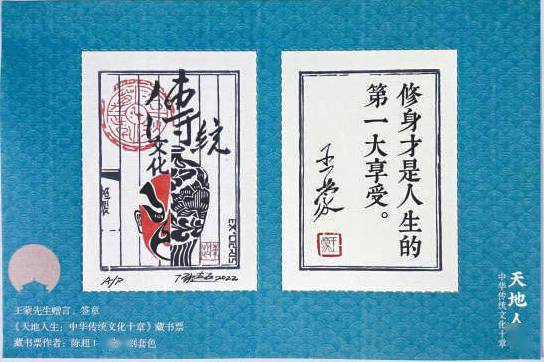 傳統
文化
A/P
2022
修身才是人生的
第一大享受。
王蒙
天地人
中华传统文化十章
王蒙先生赠言、签章
《天地人生：中华传统文化十章》藏书票
藏书票作者：陈超
刻套色